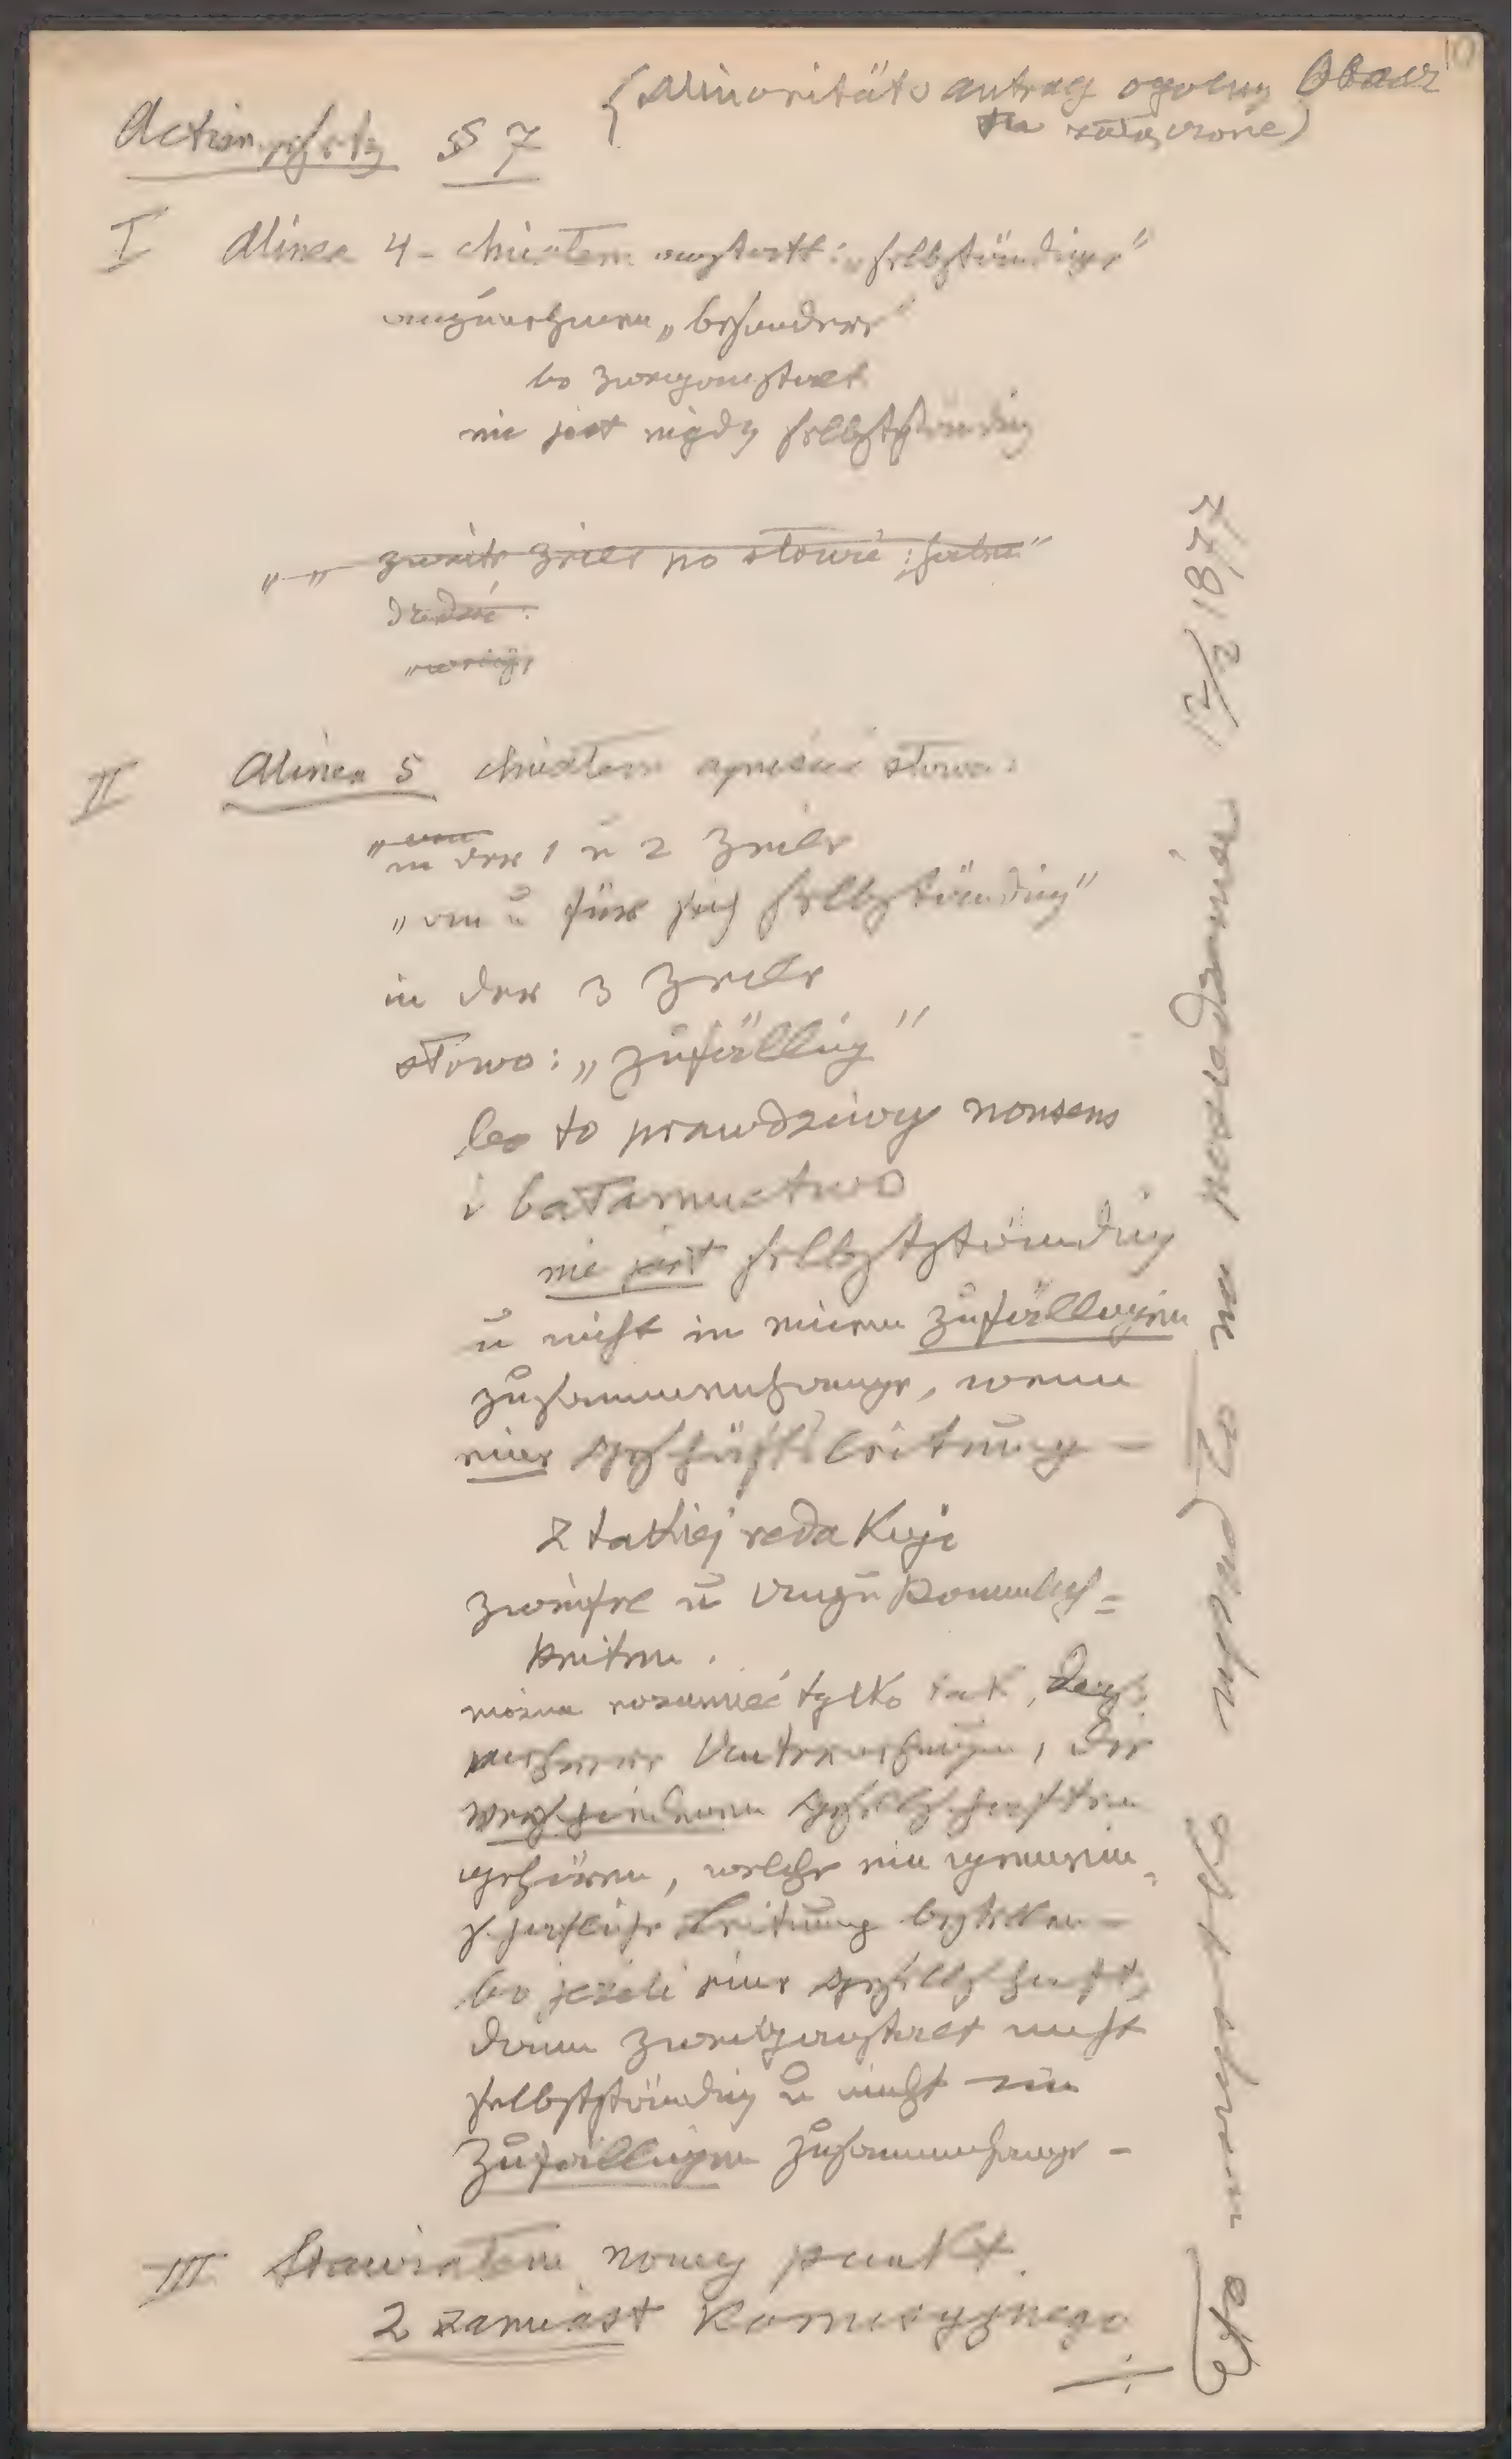 10
{Minoritäts antrag ogólny Obacz
tu załączone)
Actiengesetz § 7
I Alinea 4 - chciałem anstatt: „selbständiger"
„besondere"
bo Zweiganstalt
nie jest nigdy selbstständig
„ „ zweite Zeile po słowie: „
dodać:
II Alinea 5 chciałem opuścić słowa:
in der 1 u 2 Zeile
„an u für sich selbständig"
in der 3 Zeile
słowo: „zufällig"
bo to prawdziwy nonsens
i bałamuctwo
nie jest selbstständig
u nicht in einem zufälligen
Zusammenhange, wenn
eine Geschäftsleitung —
z takiej redakcyi
Zweifel u Unzukömmlich=
keiten.
można rozumieć tylko tak, dass
mehrere Unternehmungen, die
verschiedenen Gesellschaften
gehören, welche eine gemein=
schaftliche Leitung bestellen —
bo jeżeli eine Gesellschaft,
dann Zweiganstalt nicht
selbstständig u nicht im
Zufälligen Zusammenhange —
III Stawiałem nowy punkt
2 zamiast Komisyjnego
÷
wszystko upadło na posiedzeniu 12/2 1877